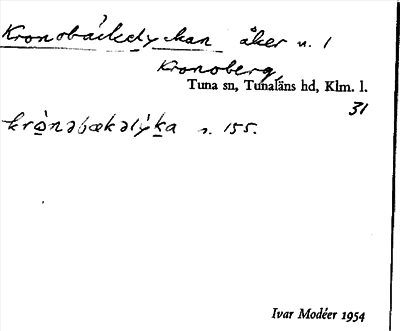 Kronobäckelyckan åker n. 1
Kronoberg,
Tuna sn, Tunaläns hd, Klm. l.
31
krò̠nəbækəlýḵa s. 155.
Ivar Modéer 1954